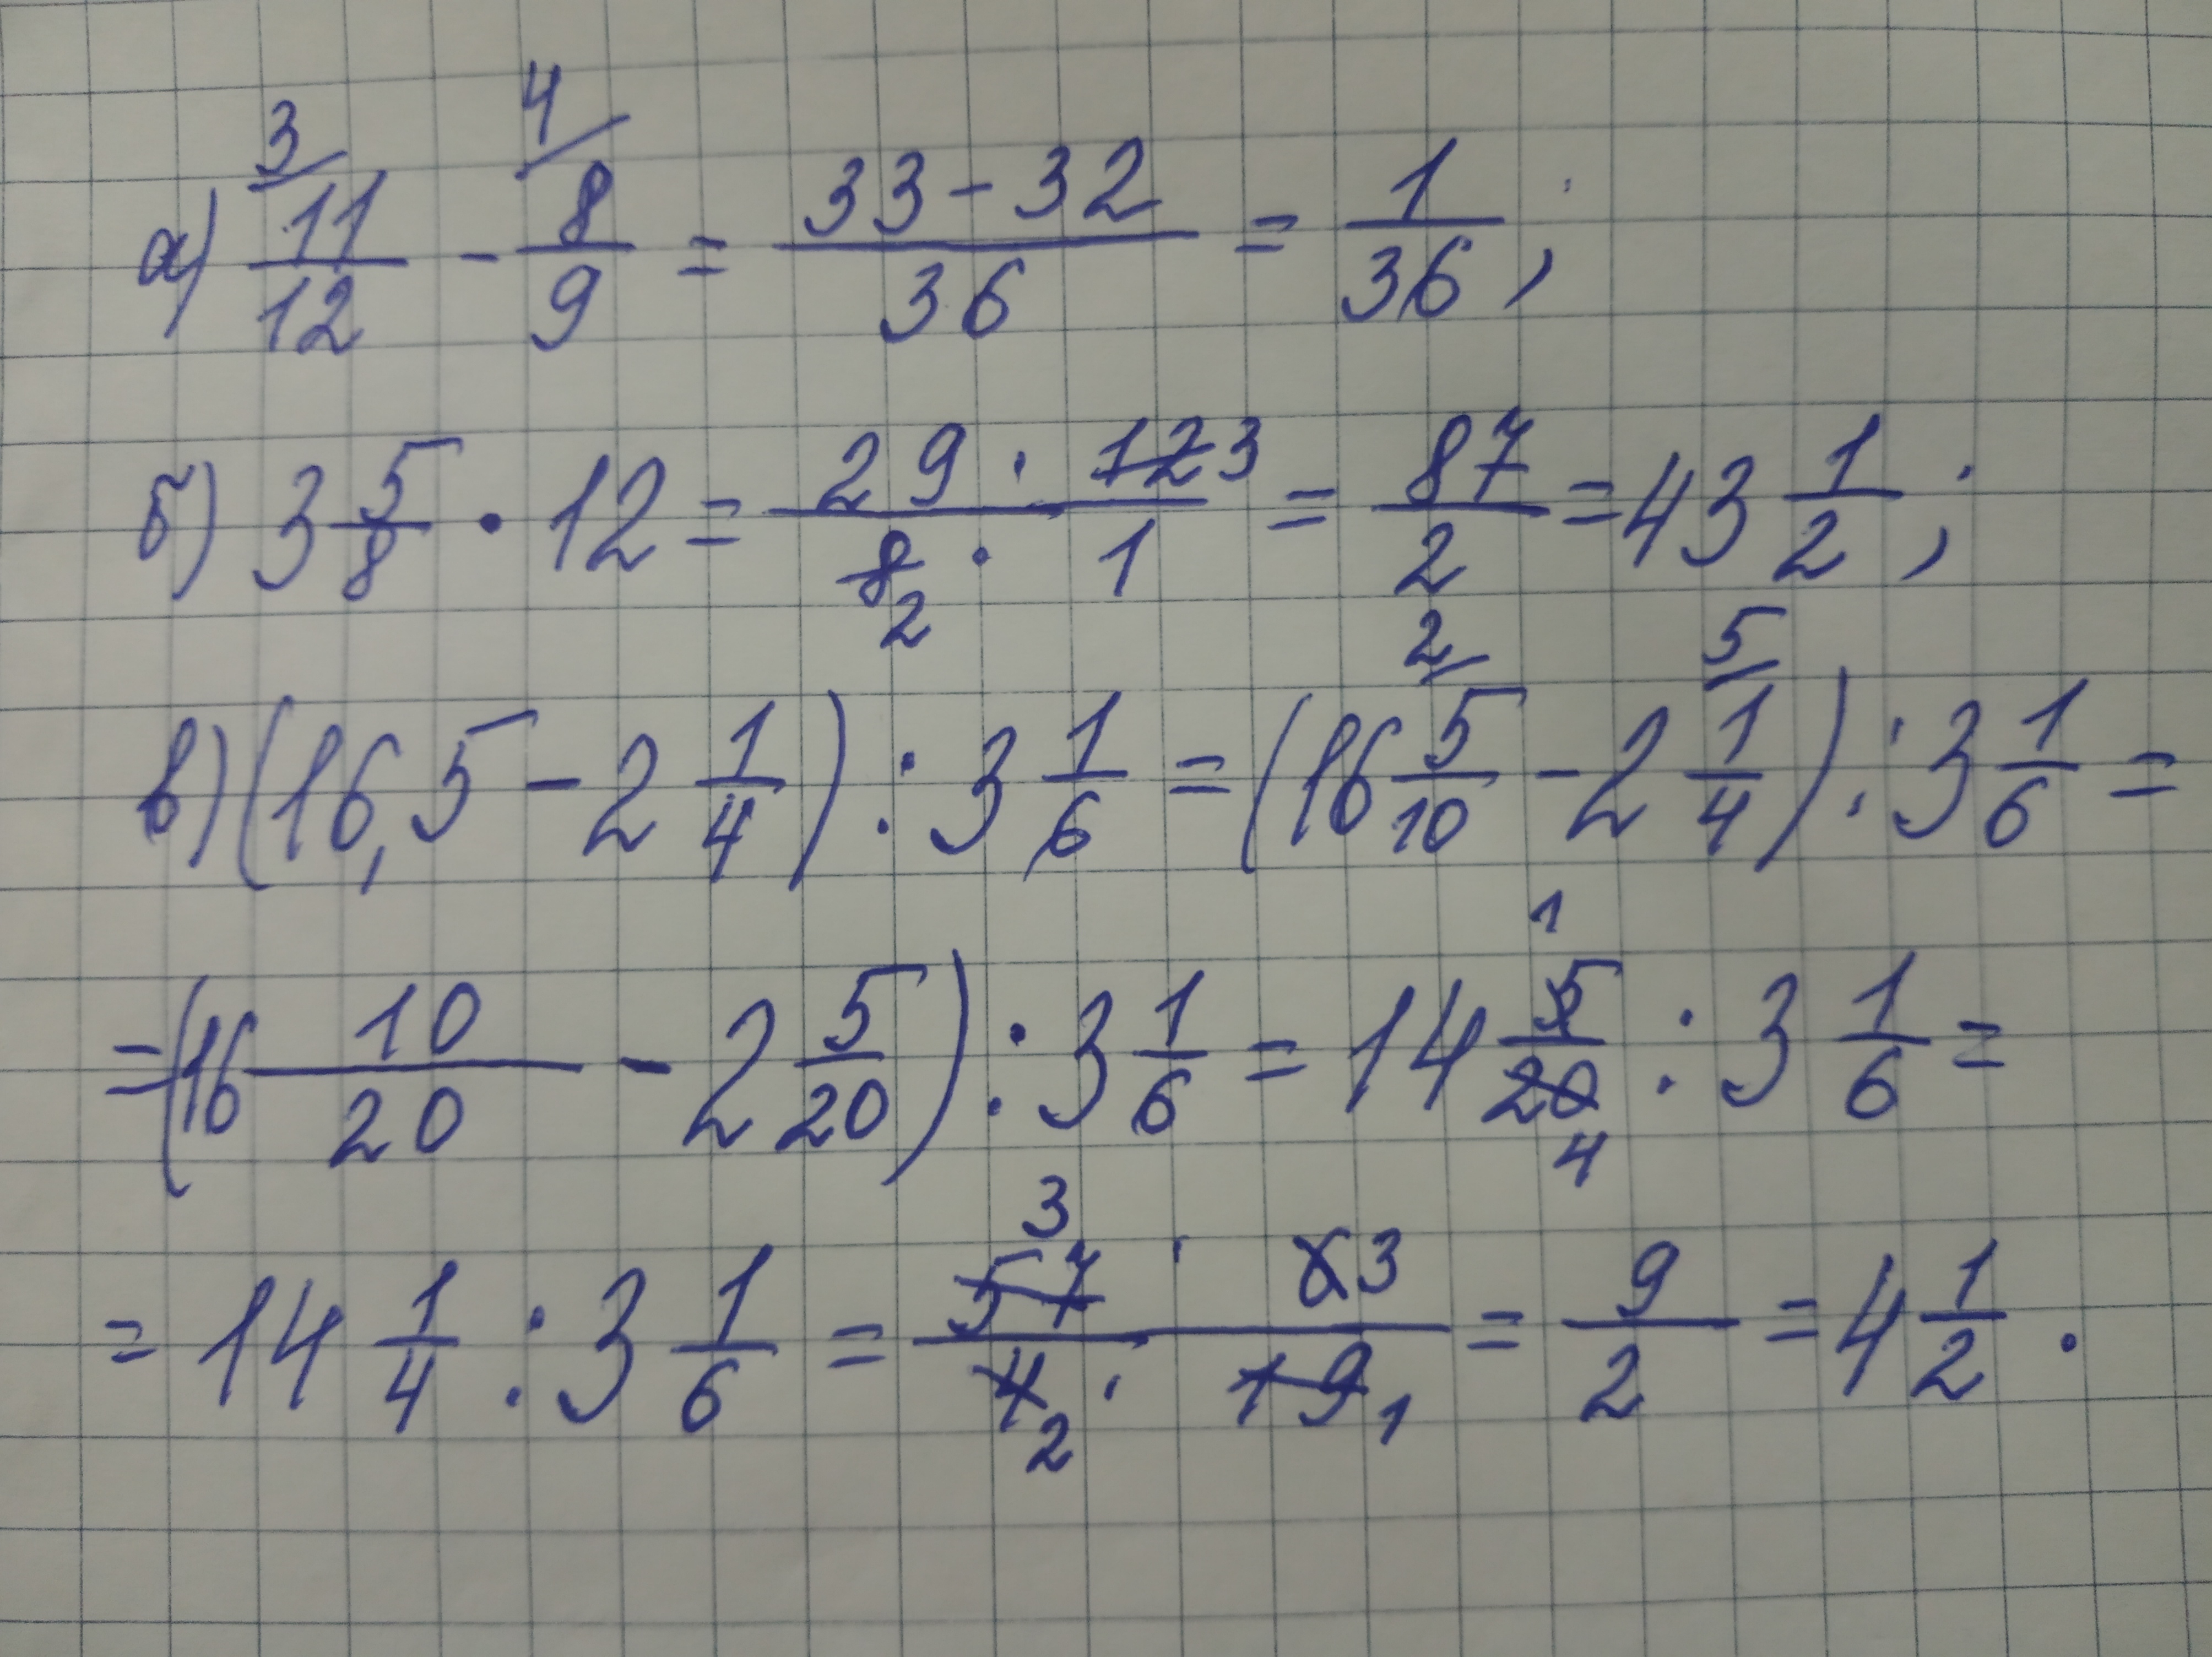 а) 3/ 11/12 - 4/ 8/9 = (33-32)/36 = 1/36;
б) 3 5/8 · 12 = (29 · 12 3)/(8 2 · 1) = 87/2 = 43 1/2;
в) (16,5 - 2 1/4) : 3 1/6 = (16 2/ 5/10 - 2 5/ 1/4) : 3 1/6 =
= (16 10/20 - 2 5/20) : 3 1/6 = 14 5 1/20 4 : 3 1/6 =
= 14 1/4 : 3 1/6 = (57 3 · 6 3)/(4 2 · 19 1) = 9/2 = 4 1/2.